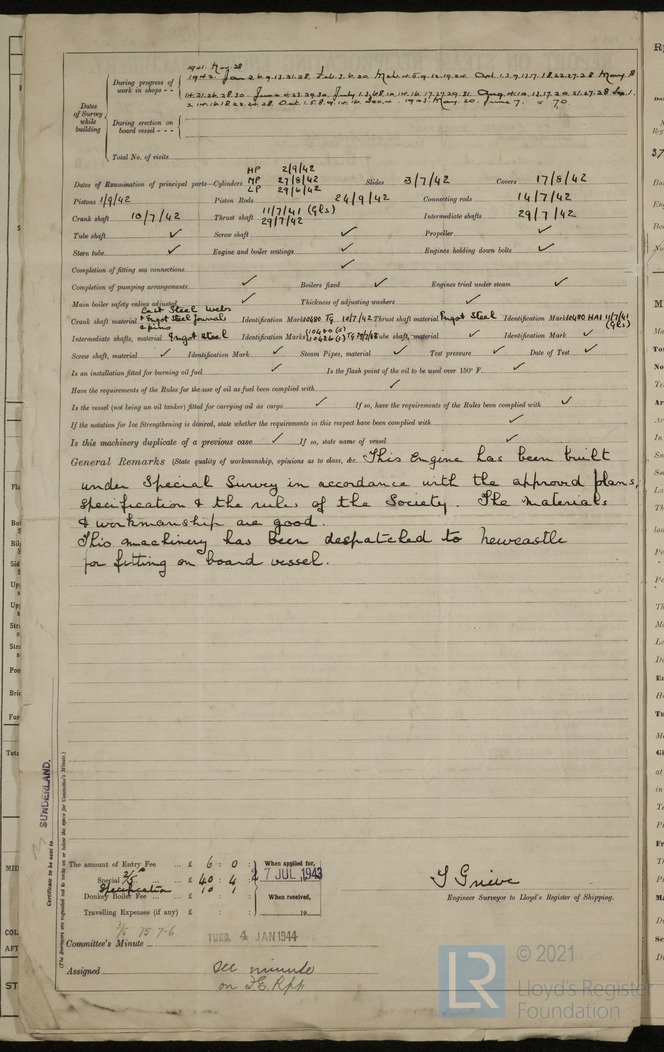 1941. May. 28
During progress of work in shops - - 1942. Jan 2.6.9.13.21.28. Feb. 3.6.20.
Dates of Survey while building
During erection on board vessel - - -
Total No. of visits
Dates of Examination of principal parts—Cylinders HP 2/9/42 MP 27/8/42 LP 29/6/42 Slides 3/7/42 Covers 17/8/42
Pistons 1/9/42 Piston Rods 24/9/42 Connecting rods 14/7/42
Crank shaft 10/7/42 Thrust shaft 11/7/41 (Gls) 29/7/42 Intermediate shafts 29/7/42
Tube shaft ✓ Screw shaft ✓ Propeller ✓
Stern tube ✓ Engine and boiler seatings ✓ Engines holding down bolts ✓
Completion of fitting sea connections ✓
Completion of pumping arrangements ✓ Boilers fixed ✓ Engines tried under steam ✓
Main boiler safety valves adjusted ✓ Thickness of adjusting washers ✓
Crank shaft material Cast Steel Webs & Ingot Steel Journals & pins Identification Mark 10480 TG 10/7/42 Thrust shaft material Ingot Steel Identification Mark 10480 HAI 11/7/41 (Gls)
Intermediate shafts, material Ingot Steel Identification Marks TG 29/7/42 Tube shaft, material ✓ Identification Mark ✓
Screw shaft, material ✓ Identification Mark ✓ Steam Pipes, material ✓ Test pressure ✓ Date of Test ✓
Is an installation fitted for burning oil fuel ✓ Is the flash point of the oil to be used over 150° F. ✓
Have the requirements of the Rules for the use of oil as fuel been complied with ✓
Is the vessel (not being an oil tanker) fitted for carrying oil as cargo ✓ If so, have the requirements of the Rules been complied with ✓
If the notation for Ice Strengthening is desired, state whether the requirements in this respect have been complied with ✓
Is this machinery duplicate of a previous case ✓ If so, state name of vessel ✓
General Remarks (State quality of workmanship, opinions as to class, &c. This Engine has been built
under Special Survey in accordance with the approved plans,
specification & the rules of the Society. The materials
& workmanship are good.
This machinery has been despatched to Newcastle
for fitting on board vessel.
SUNDERLAND.
Certificate to be sent to
(The Surveyors are requested not to write on or below the space for Committee's Minute.)
The amount of Entry Fee ... £ 6 : 0 : When applied for,
Special ... £ 40 : 4 : 27 JUL 1943
Specification 10 : 1
Donkey Boiler Fee ... £ : : When received,
Travelling Expenses (if any) £ : : 19
T Grieve
Engineer Surveyor to Lloyd's Register of Shipping.
Committee's Minute TUES. 4 JAN 1944
Assigned see minute
on F.E. Rpt
LR
© 2021
Lloyd's Register
Foundation